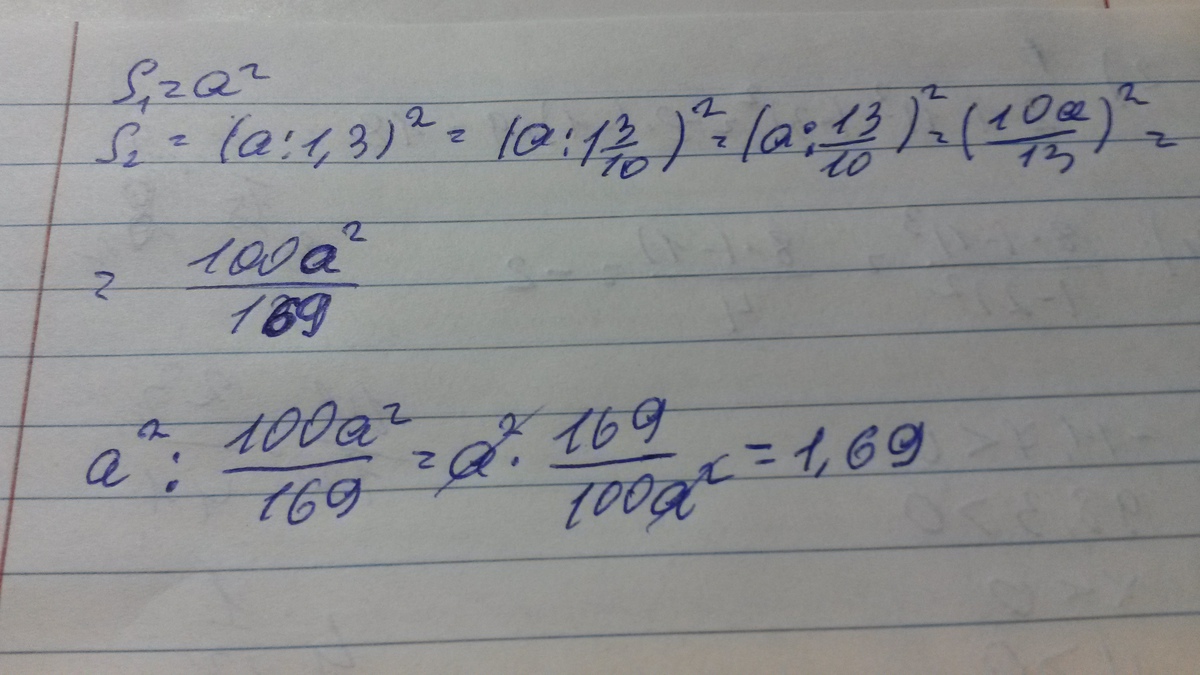 S₁ = a²
S₂ = (a : 1,3)² = (a : 1 3/10)² = (a : 13/10)² = (10a/13)² =
= 100a²/169
a² : 100a²/169 = a² · 169/100a² = 1,69